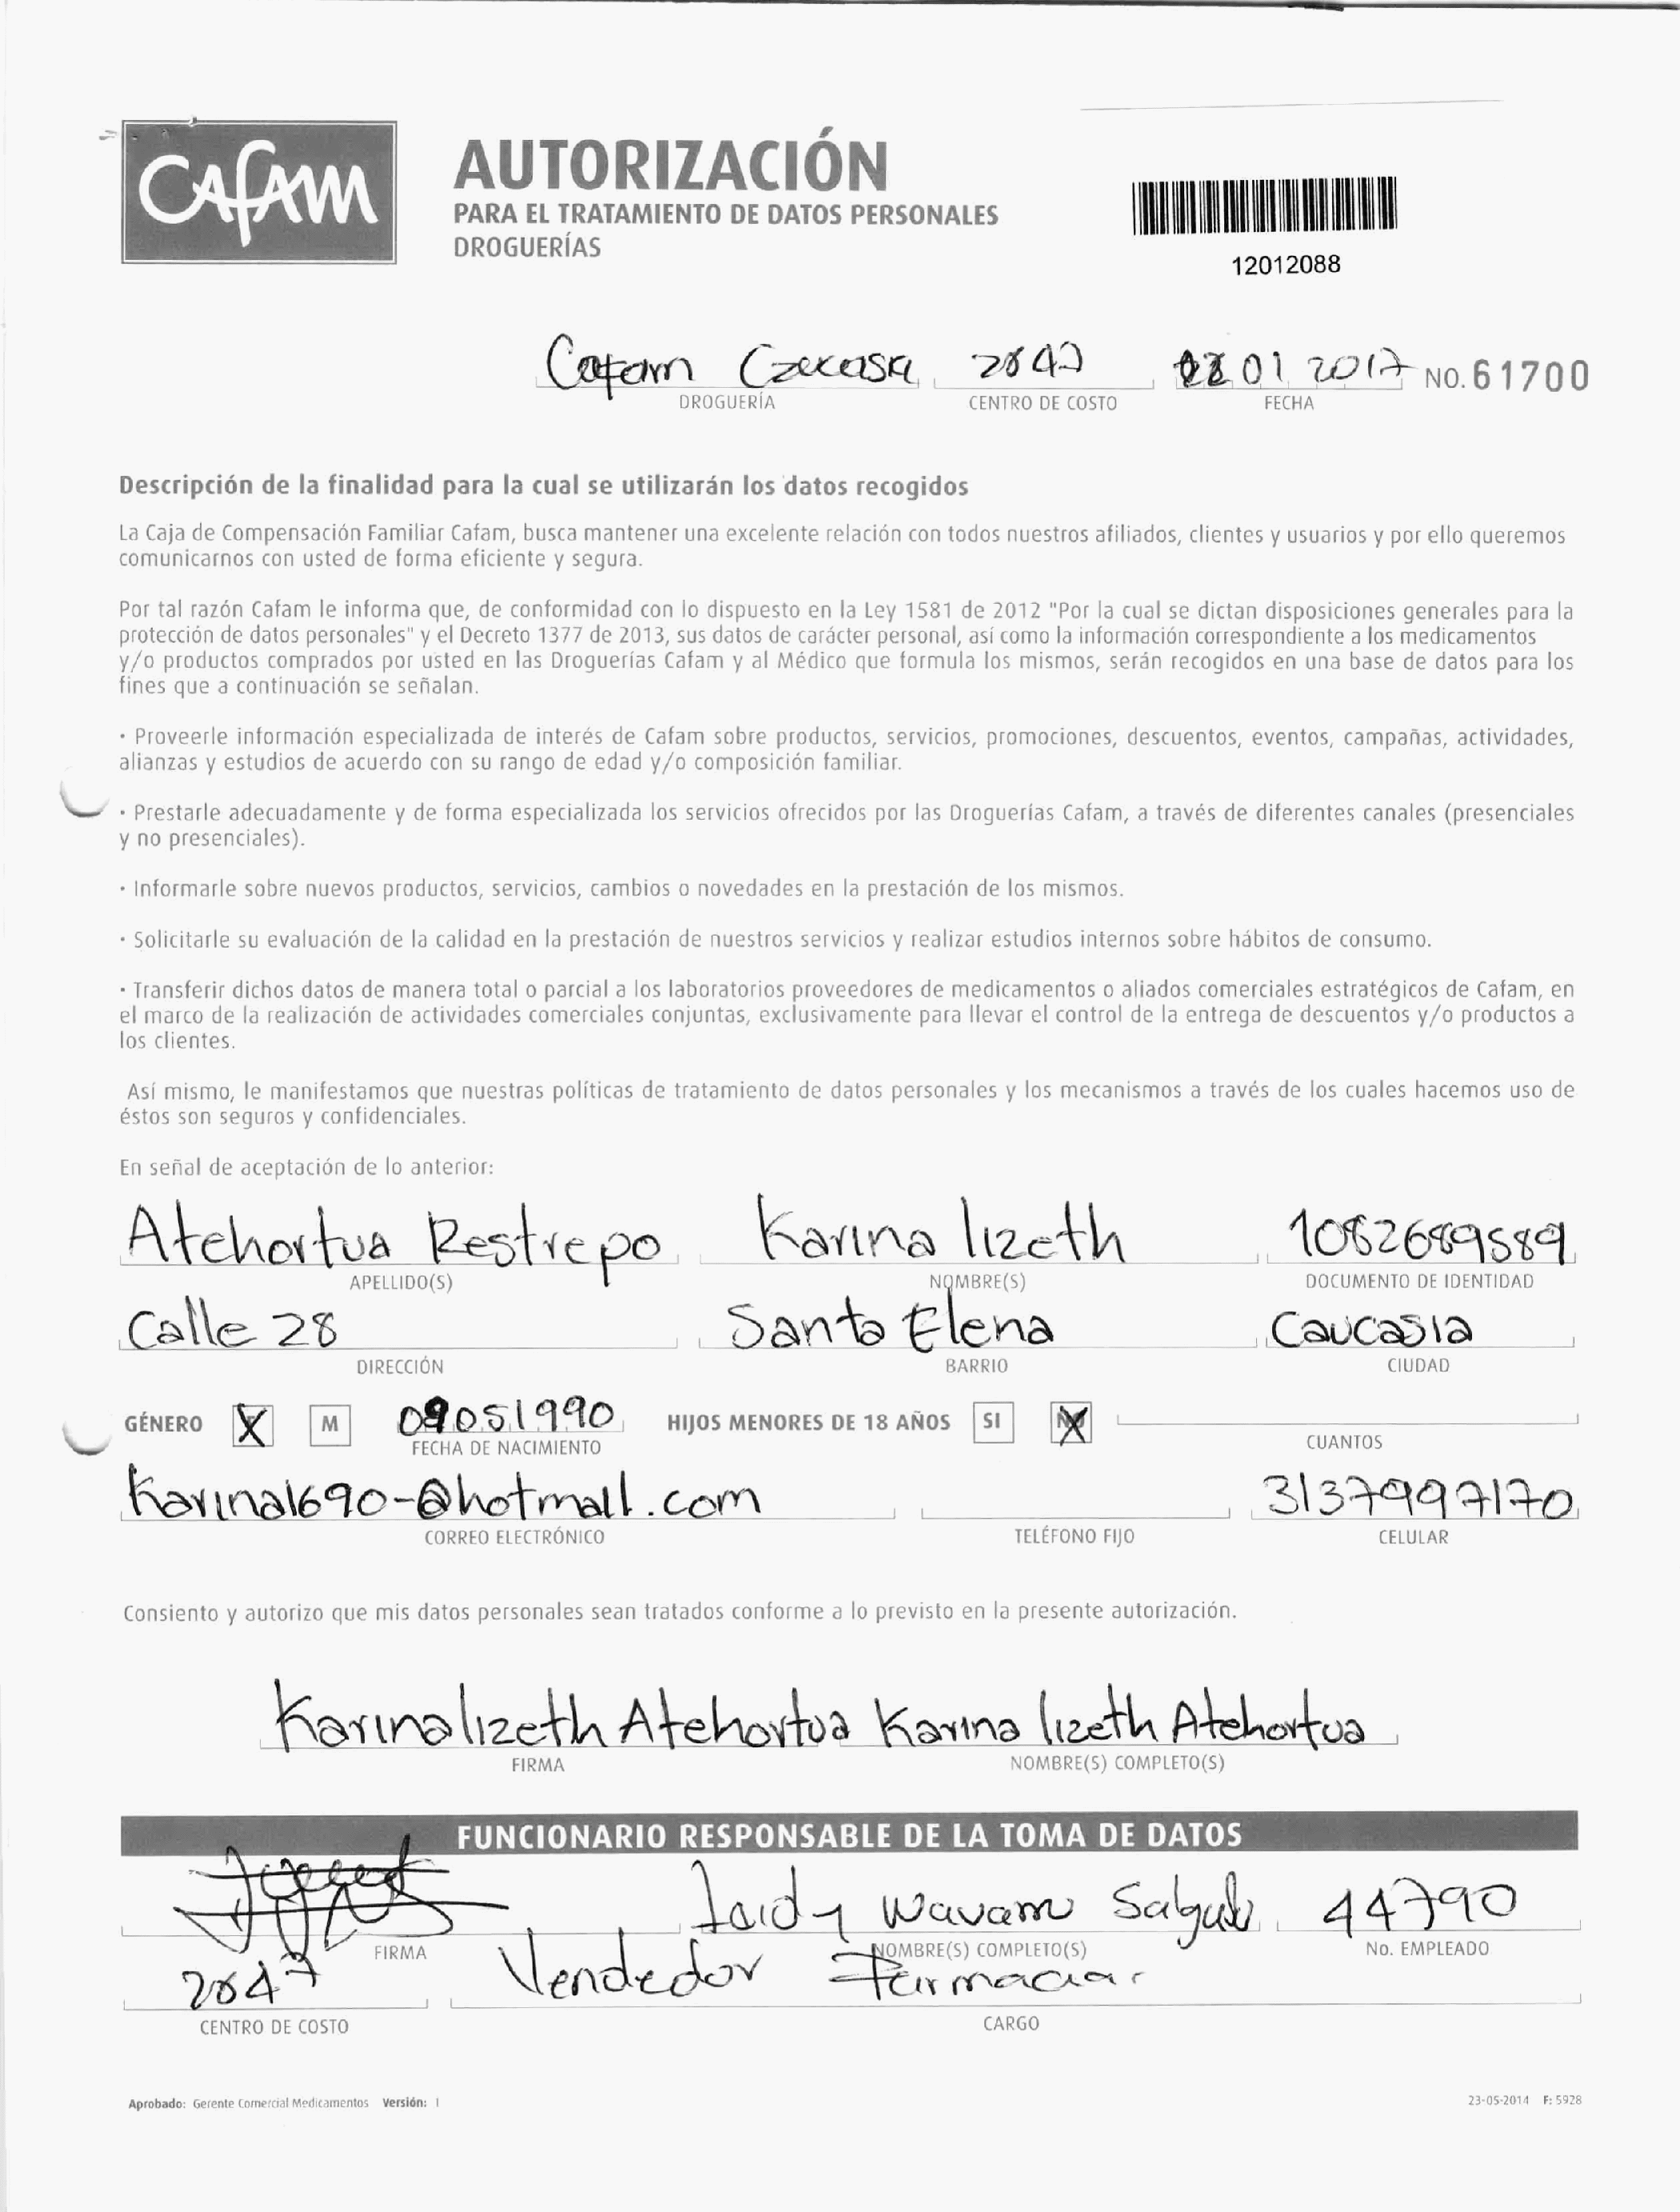 CAFAM
AUTORIZACIÓN
PARA EL TRATAMIENTO DE DATOS PERSONALES
DROGUERÍAS
12012088
Cafam 2847 01 2017 NO. 61700
DROGUERÍA CENTRO DE COSTO FECHA
Descripción de la finalidad para la cual se utilizarán los datos recogidos
La Caja de Compensación Familiar Cafam, busca mantener una excelente relación con todos nuestros afiliados, clientes y usuarios y por ello queremos
comunicarnos con usted de forma eficiente y segura.
Por tal razón Cafam le informa que, de conformidad con lo dispuesto en la Ley 1581 de 2012 "Por la cual se dictan disposiciones generales para la
protección de datos personales" y el Decreto 1377 de 2013, sus datos de carácter personal, así como la información correspondiente a los medicamentos
y/o productos comprados por usted en las Droguerías Cafam y al Médico que formula los mismos, serán recogidos en una base de datos para los
fines que a continuación se señalan.
· Proveerle información especializada de interés de Cafam sobre productos, servicios, promociones, descuentos, eventos, campañas, actividades,
alianzas y estudios de acuerdo con su rango de edad y/o composición familiar.
· Prestarle adecuadamente y de forma especializada los servicios ofrecidos por las Droguerías Cafam, a través de diferentes canales (presenciales
y no presenciales).
· Informarle sobre nuevos productos, servicios, cambios o novedades en la prestación de los mismos.
· Solicitarle su evaluación de la calidad en la prestación de nuestros servicios y realizar estudios internos sobre hábitos de consumo.
· Transferir dichos datos de manera total o parcial a los laboratorios proveedores de medicamentos o aliados comerciales estratégicos de Cafam, en
el marco de la realización de actividades comerciales conjuntas, exclusivamente para llevar el control de la entrega de descuentos y/o productos a
los clientes.
Así mismo, le manifestamos que nuestras políticas de tratamiento de datos personales y los mecanismos a través de los cuales hacemos uso de
éstos son seguros y confidenciales.
En señal de aceptación de lo anterior:
Atehortua Restrepo Karina lizeth 1082689589
APELLIDO(S) NOMBRE(S) DOCUMENTO DE IDENTIDAD
Calle 28 Santa Elena Caucasia
DIRECCIÓN BARRIO CIUDAD
GÉNERO X M 09051990 HIJOS MENORES DE 18 AÑOS SI NO X
FECHA DE NACIMIENTO CUANTOS
Karina1690-@hotmail.com 3137997170
CORREO ELECTRÓNICO TELÉFONO FIJO CELULAR
Consiento y autorizo que mis datos personales sean tratados conforme a lo previsto en la presente autorización.
Karina lizeth Atehortua Karina lizeth Atehortua
FIRMA NOMBRE(S) COMPLETO(S)
FUNCIONARIO RESPONSABLE DE LA TOMA DE DATOS
44790
FIRMA NOMBRE(S) COMPLETO(S) No. EMPLEADO
2847 Vendedor
CENTRO DE COSTO CARGO
Aprobado: Gerente Comercial Medicamentos Versión: 1 23-05-2014 F: 5928